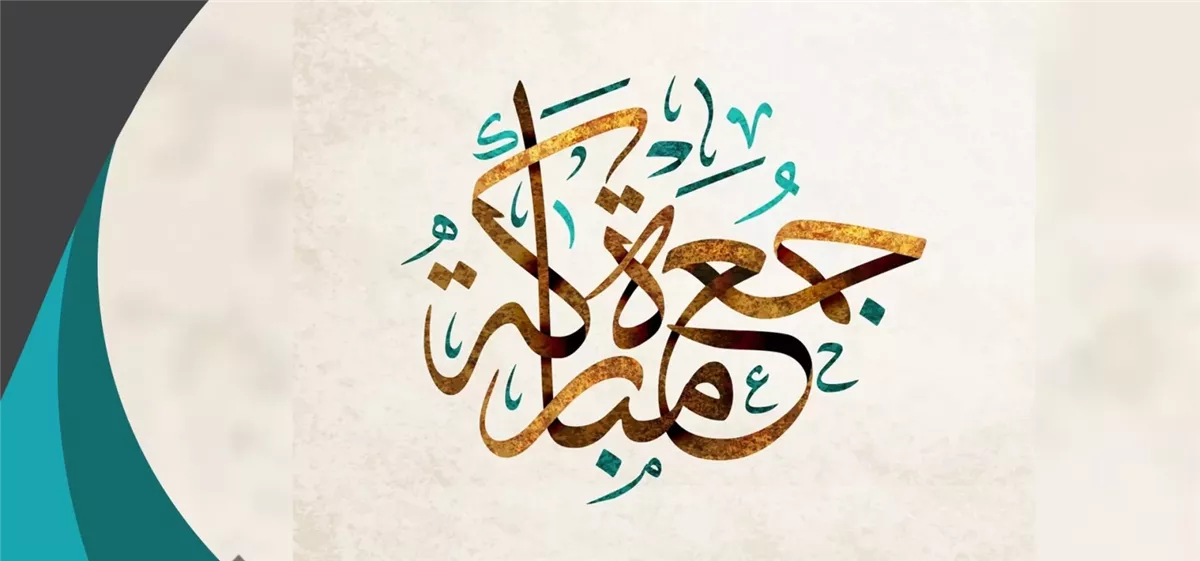 جُمعَة
مباركة